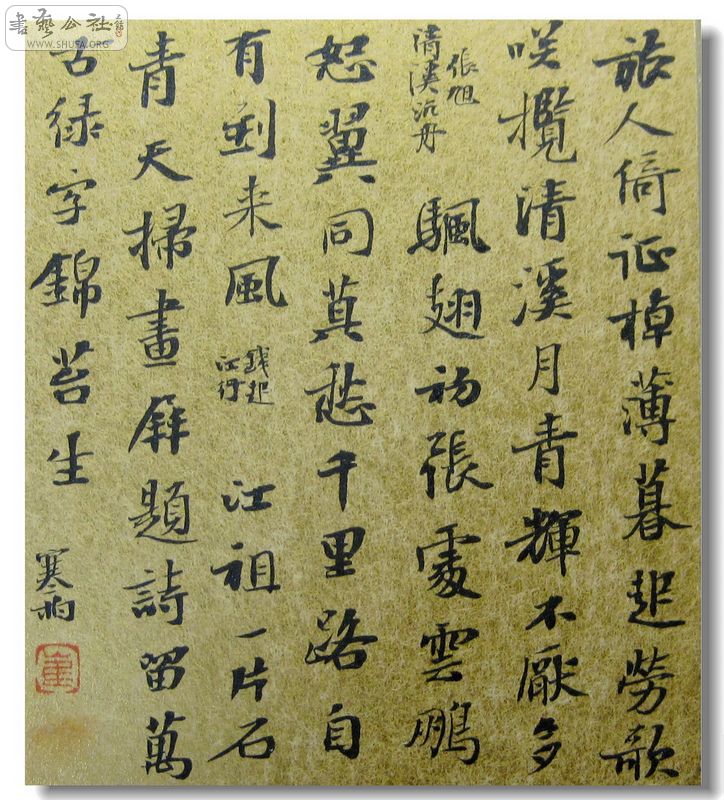 書藝公社
WWW.SHUFA.ORG
旅人倚征棹薄暮起勞歌
咲攬清溪月青輝不厭多
張旭
清溪泛舟
颿翅初張處雲鵬
怒翼同莫愁千里路自
有到来風
錢起
江行
江祖一片石
青天掃畫屏題詩留萬
古緑字錦苔生